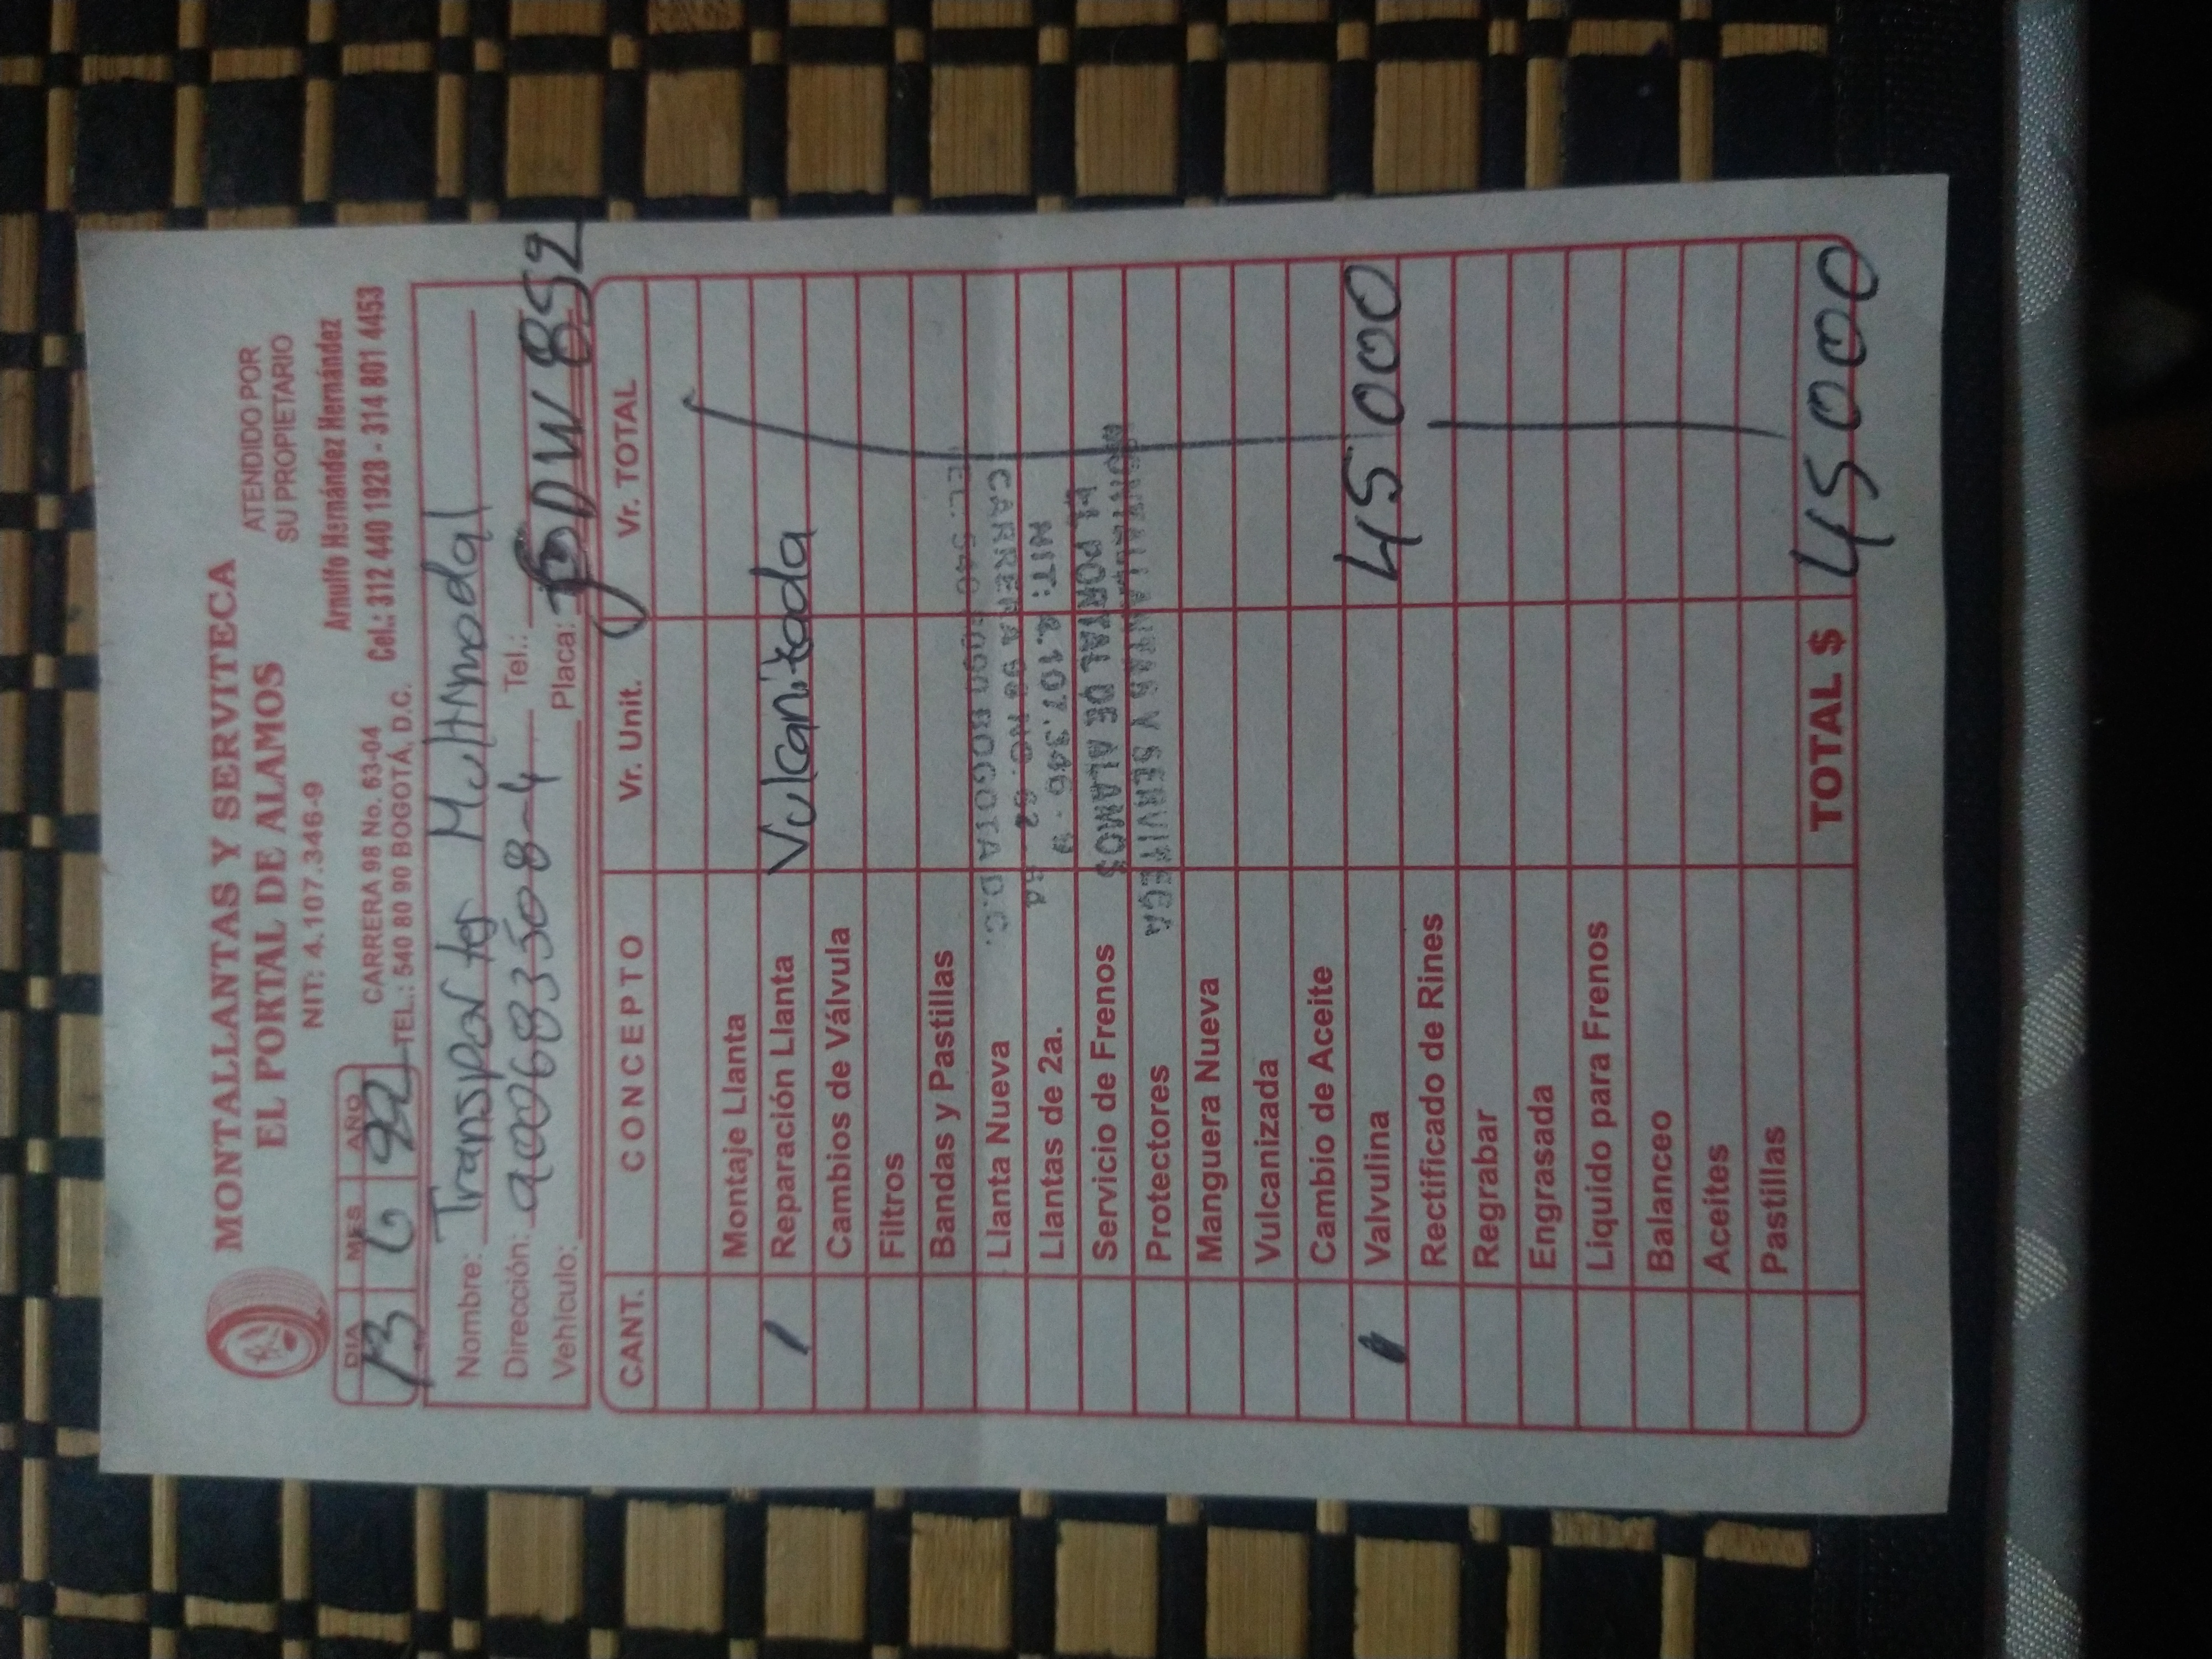 MONTALLANTAS Y SERVITECA
EL PORTAL DE ALAMOS
NIT: 4.107.346-9
ATENDIDO POR
SU PROPIETARIO
Arnulfo Hernández Hernández
CARRERA 98 No. 63-04
Cel.: 312 440 1928 - 314 801 4453
TEL.: 540 80 90 BOGOTÁ, D.C.
DIA MES AÑO
13 6 22
Nombre: Transportes Multimodal
Dirección: 900683508-4 Tel.:
Vehículo: Placa: DW 852
CANT. CONCEPTO Vr. Unit. Vr. TOTAL
Montaje Llanta
1 Reparación Llanta Vulcanitada
Cambios de Válvula
Filtros
Bandas y Pastillas
Llanta Nueva
Llantas de 2a.
Servicio de Frenos
Protectores
Manguera Nueva
Vulcanizada
Cambio de Aceite
1 Valvulina 45000
Rectificado de Rines
Regrabar
Engrasada
Liquido para Frenos
Balanceo
Aceites
Pastillas
TOTAL $ 45000
MONTALLANTAS Y SERVITECA
EL PORTAL DE ALAMOS
NIT: 4.107.346-9
CARRERA 98 NO.
BOGOTA D.C.